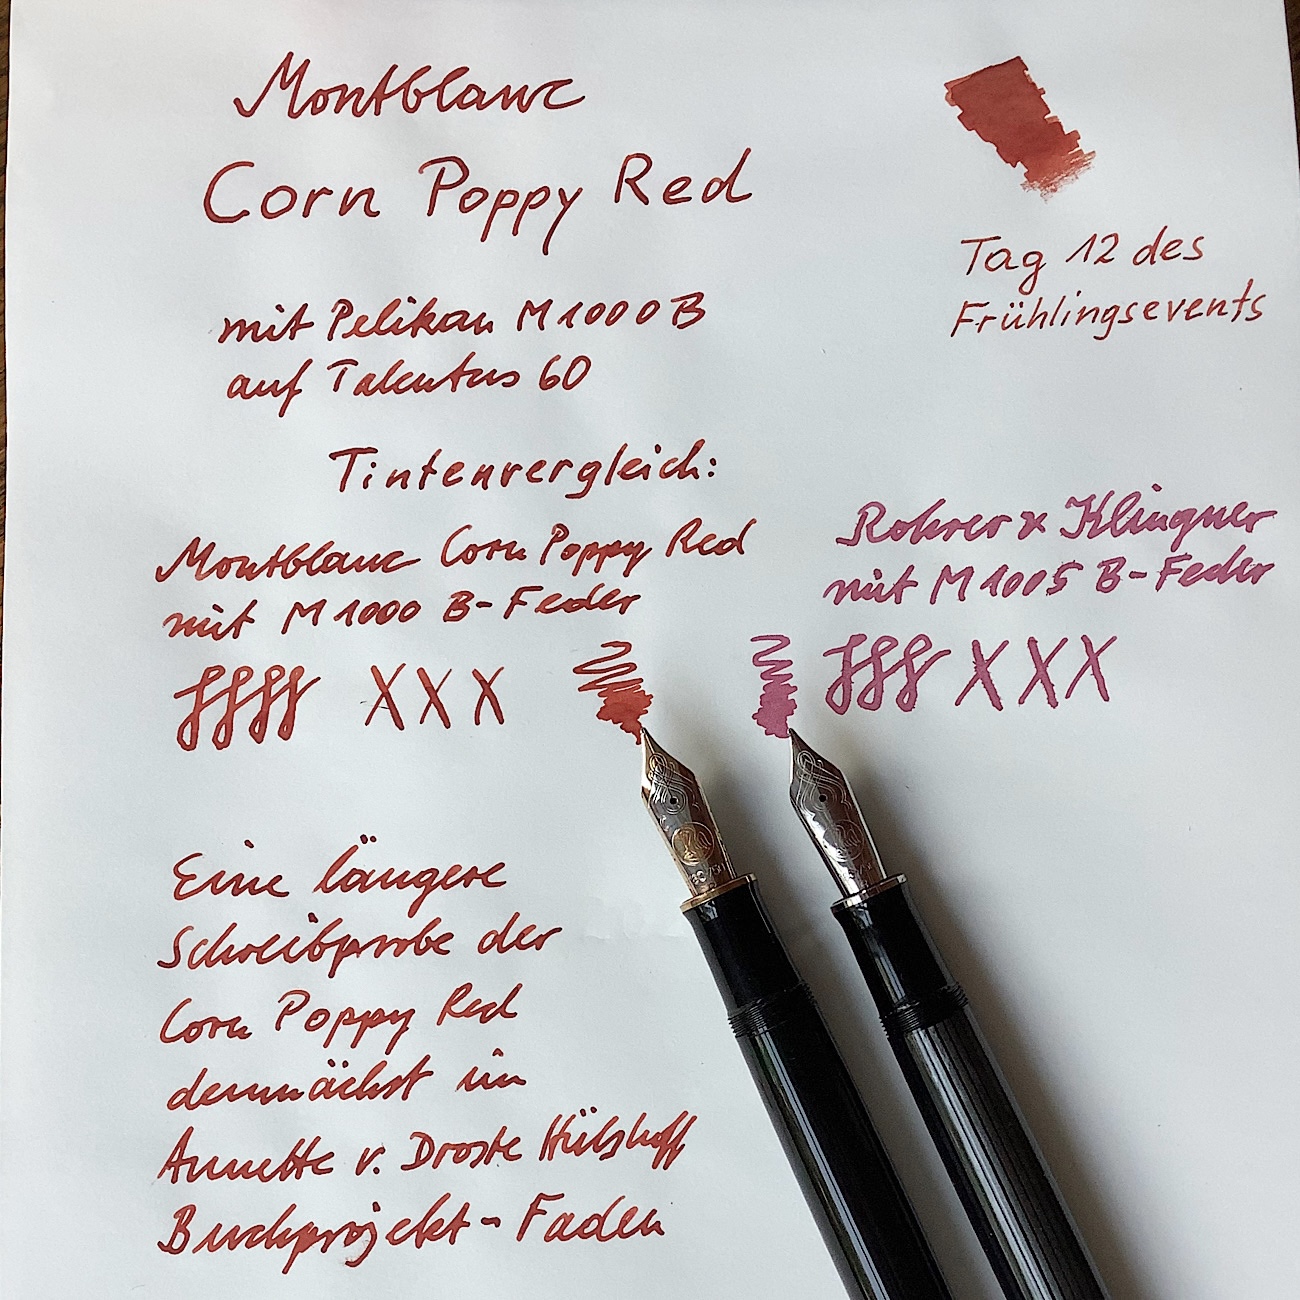 Montblanc
Corn Poppy Red
Tag 12 des
Frühlingsevents
mit Pelikan M1000 B
auf Talentus 60
Tintenvergleich:
Montblanc Corn Poppy Red
mit M1000 B-Feder
Rohrer x Klingner
mit M1005 B-Feder
XXX
XXX
Eine längere
Schreibprobe der
Corn Poppy Red
demnächst im
Annette v. Droste Hülshoff
Buchprojekt-Faden